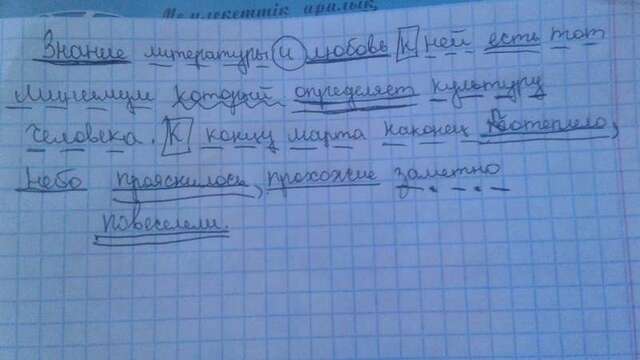 Мемлекеттік
Знание литературы и любовь к ней есть тот
минимум который определяет культуру
человека. К концу марта наконец потеплело,
небо прояснилось, прохожие заметно
повеселели.